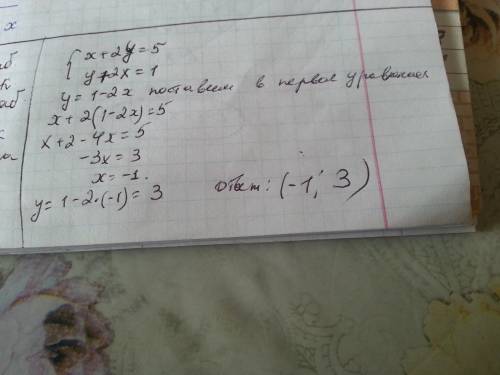 x
{ x+2y=5
y+2x=1
y=1-2x поставляем в первое уравнение
x+2(1-2x)=5
x+2-4x=5
-3x=3
x=-1.
y=1-2·(-1)=3
ответ: (-1; 3)